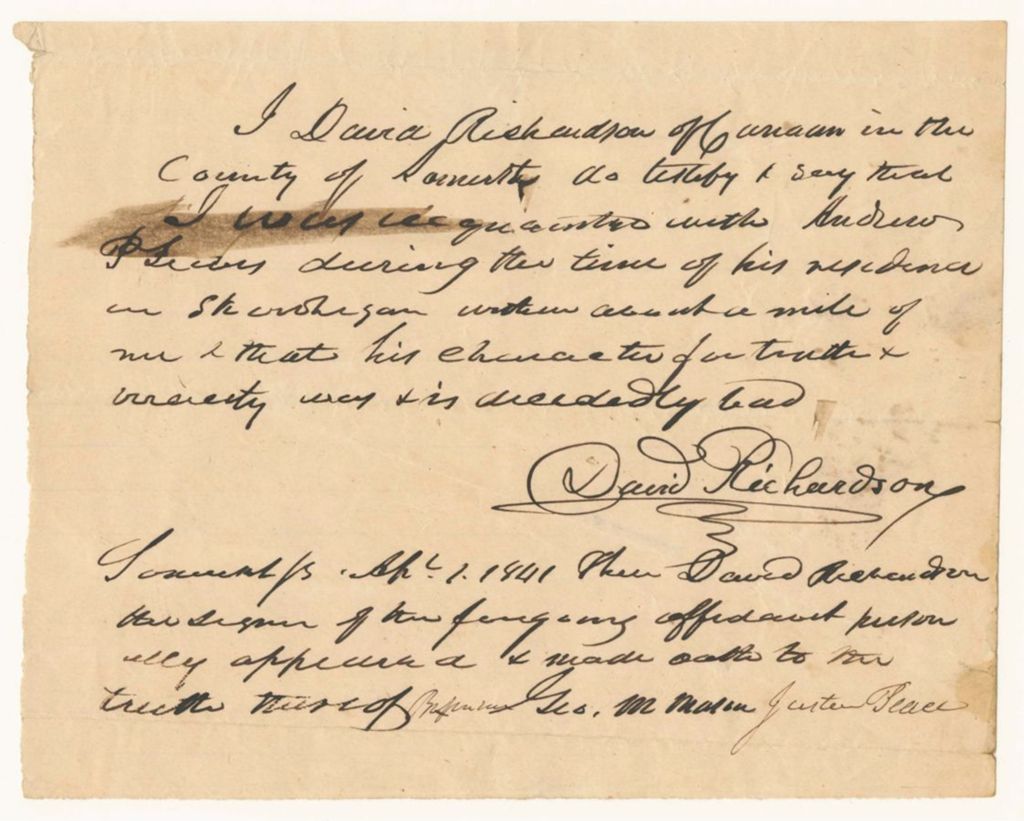 I David Richardson of Canaan in the
County of Somerset do testify & say that
I was acquainted with Andrew
P Lewis during the time of his residence
in Skowhegan within about a mile of
me & that his character for truth &
veracity was & is decidedly bad
David Richardson
Somerset ss. Apl. 1. 1841 Then David Richardson
the signer of the foregoing affidavit person
ally appeared & made oath to the
truth thereof Before me Geo. M Mason Justice Peace